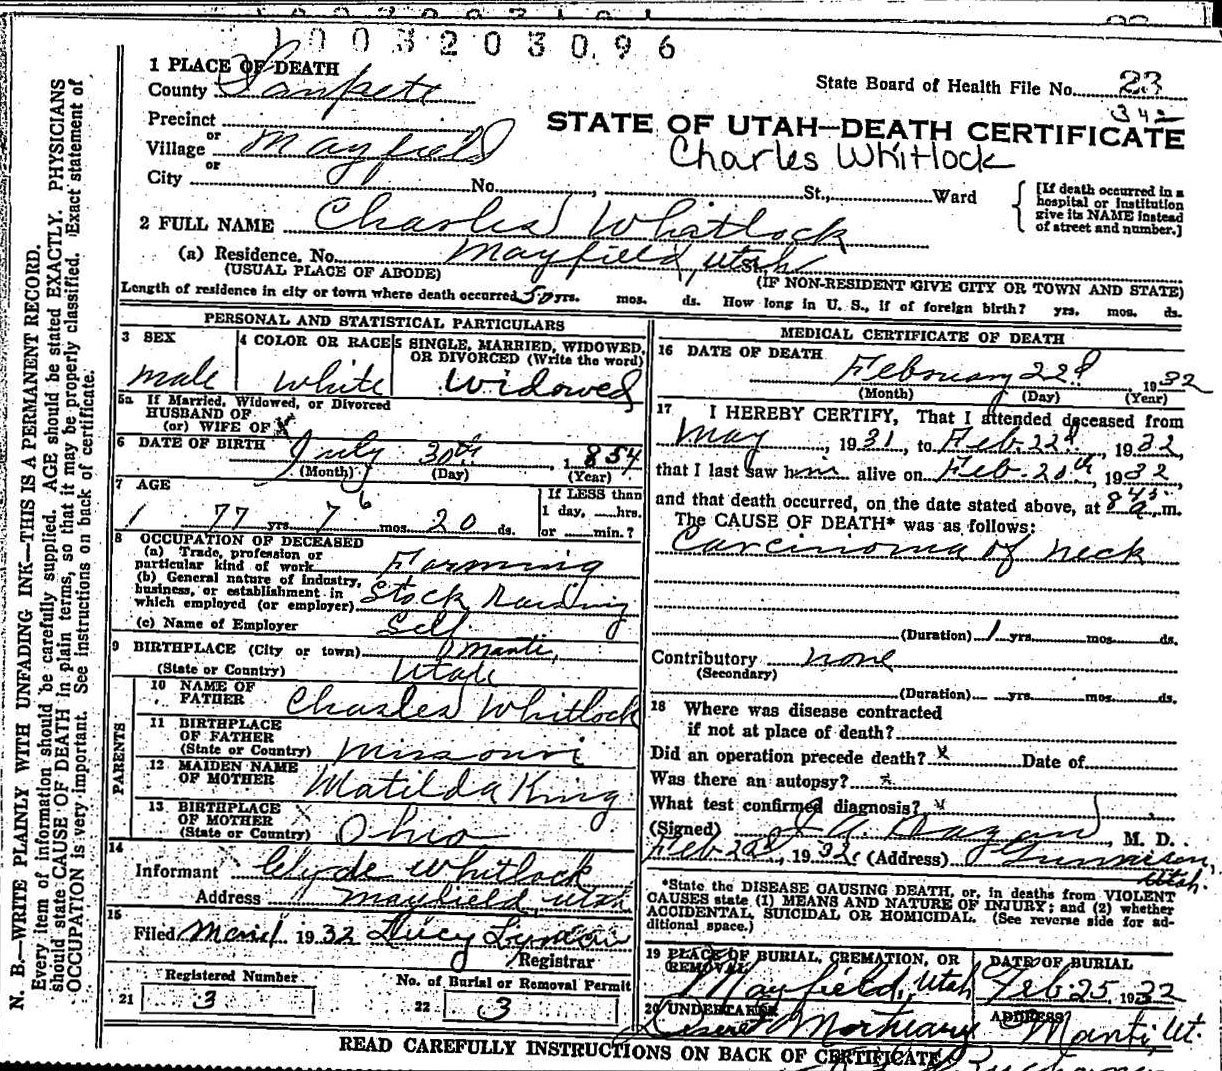 1003203096
1 PLACE OF DEATH
County Sanpete
State Board of Health File No. 23
342
Precinct
or
Village Mayfield
or
STATE OF UTAH—DEATH CERTIFICATE
Charles Whitlock
City No. , St., Ward
[If death occurred in a hospital or institution give its NAME instead of street and number.]
2 FULL NAME Charles Whitlock
(a) Residence. No. Mayfield, Utah
(USUAL PLACE OF ABODE) (IF NON-RESIDENT GIVE CITY OR TOWN AND STATE)
Length of residence in city or town where death occurred 50 yrs. mos. ds. How long in U. S., if of foreign birth? yrs. mos. ds.
PERSONAL AND STATISTICAL PARTICULARS
3 SEX 4 COLOR OR RACE 5 SINGLE, MARRIED, WIDOWED, OR DIVORCED (Write the word)
male white Widowed
5a If Married, Widowed, or Divorced
HUSBAND OF
(or) WIFE OF X
6 DATE OF BIRTH July 30th, 1854
(Month) (Day) (Year)
7 AGE
If LESS than
1 day, hrs.
or min.?
77 yrs. 7 6 mos. 20 ds.
8 OCCUPATION OF DECEASED
(a) Trade, profession or particular kind of work Farming
(b) General nature of industry, business, or establishment in which employed (or employer) Stock Raising
(c) Name of Employer Self
9 BIRTHPLACE (City or town) Manti,
(State or Country) Utah
PARENTS
10 NAME OF FATHER Charles Whitlock
11 BIRTHPLACE OF FATHER (State or Country) Missouri
12 MAIDEN NAME OF MOTHER Matilda King
13 BIRTHPLACE OF MOTHER (State or Country) Ohio
14
Informant Clyde Whitlock
Address Mayfield, Utah
15
Filed 1932 Lucy
Registrar
Registered Number No. of Burial or Removal Permit
21 3 22 3
MEDICAL CERTIFICATE OF DEATH
16 DATE OF DEATH
February 22d, 1932
(Month) (Day) (Year)
17 I HEREBY CERTIFY, That I attended deceased from
May, 1931, to Feb. 22d, 1932,
that I last saw him alive on Feb. 20th, 1932,
and that death occurred, on the date stated above, at 8 45 a.m.
The CAUSE OF DEATH* was as follows:
Carcinoma of neck
(Duration) 1 yrs. mos. ds.
Contributory none
(Secondary)
(Duration) yrs. mos. ds.
18 Where was disease contracted
if not at place of death?
Did an operation precede death? X Date of
Was there an autopsy? x
What test confirmed diagnosis?
(Signed) M. D.
1932. (Address) Gunnison, Utah.
*State the DISEASE CAUSING DEATH, or, in deaths from VIOLENT
CAUSES state (1) MEANS AND NATURE OF INJURY; and (2) whether
ACCIDENTAL, SUICIDAL OR HOMICIDAL. (See reverse side for ad-
ditional space.)
19 PLACE OF BURIAL, CREMATION, OR REMOVAL DATE OF BURIAL
Mayfield, Utah Feb. 25 1932
20 UNDERTAKER ADDRESS
Deseret Mortuary Manti, Ut.
READ CAREFULLY INSTRUCTIONS ON BACK OF CERTIFICATE
N. B.—WRITE PLAINLY WITH UNFADING INK—THIS IS A PERMANENT RECORD.
Every item of information should be carefully supplied. AGE should be stated EXACTLY. PHYSICIANS
should state CAUSE OF DEATH in plain terms, so that it may be properly classified. Exact statement of
OCCUPATION is very important. See instructions on back of certificate.